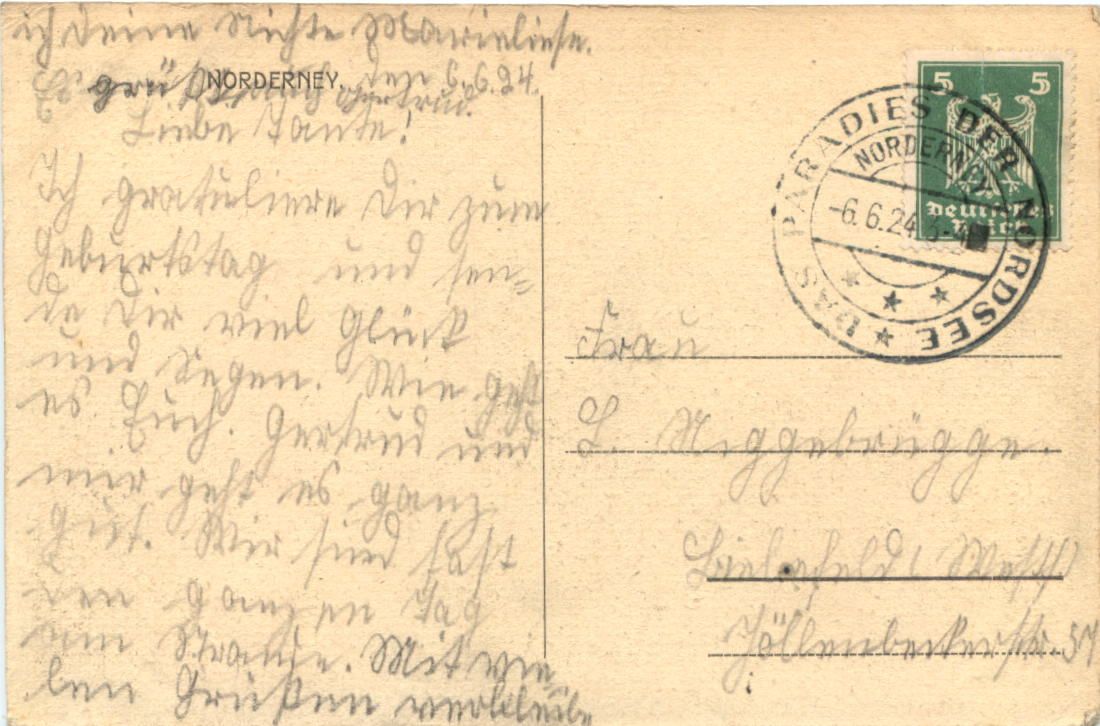 ich Deine Nichte Marieliese.
NORDERNEY.
den 6.6.24.
Gertrud.
Liebe Tante!
Ich gratuliere Dir zum
Geburtstag und sen-
de Dir viel Glück
und Segen. Wie geht
es Euch. Gertrud und
mir geht es ganz
gut. Wir sind fast
den ganzen Tag
am Strande. Mit vie
len Grüßen verbleibe
5 5
Deutsches
Reich
DAS PARADIES DER NORDSEE
NORDERNEY
-6.6.24
Frau
L. Niggebrügge.
Bielefeld / Westf
Jöllenbeckerstr. 57